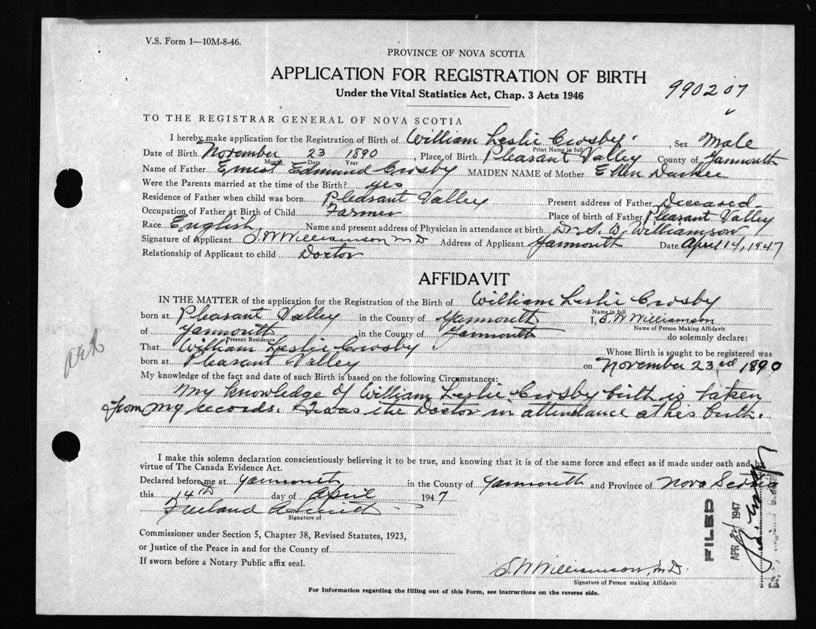 V.S. Form 1—10M-8-46.
PROVINCE OF NOVA SCOTIA
APPLICATION FOR REGISTRATION OF BIRTH
990207
Under the Vital Statistics Act, Chap. 3 Acts 1946
TO THE REGISTRAR GENERAL OF NOVA SCOTIA
I hereby make application for the Registration of Birth of William Leslie Crosby. Sex Male
Print Name in full
Date of Birth November 23 1890, Place of Birth Pleasant Valley County of Yarmouth
Month Date Year
Name of Father Ernest Edmund Crosby MAIDEN NAME of Mother Ellen
Were the Parents married at the time of the Birth? yes
Residence of Father when child was born Pleasant Valley Present address of Father Deceased
Occupation of Father at Birth of Child Farmer Place of birth of Father Pleasant Valley
Race English Name and present address of Physician in attendance at birth Dr. S. W. Williamson
Signature of Applicant S. W. Williamson M D Address of Applicant Yarmouth Date April 14, 1947
Relationship of Applicant to child Doctor
AFFIDAVIT
IN THE MATTER of the application for the Registration of the Birth of William Leslie Crosby
Name in full
born at Pleasant Valley in the County of Yarmouth I, S. W. Williamson
Name of Person Making Affidavit
of Yarmouth in the County of Yarmouth do solemnly declare:
Present Residence
That William Leslie Crosby Whose Birth is sought to be registered was
born at Pleasant Valley on November 23rd 1890
My knowledge of the fact and date of such Birth is based on the following Circumstances:
My knowledge of William Leslie Crosby birth is taken
from my records. I was the Doctor in attendance at his birth.
I make this solemn declaration conscientiously believing it to be true, and knowing that it is of the same force and effect as if made under oath and
virtue of The Canada Evidence Act.
Declared before me at Yarmouth in the County of Yarmouth and Province of Nova Scotia
this 14th day of April 1947
Signature of
Commissioner under Section 5, Chapter 38, Revised Statutes, 1923,
or Justice of the Peace in and for the County of
If sworn before a Notary Public affix seal.
S. W. Williamson, M.D.
Signature of Person making Affidavit
For Information regarding the filling out of this Form, see instructions on the reverse side.
FILED
APR 1947